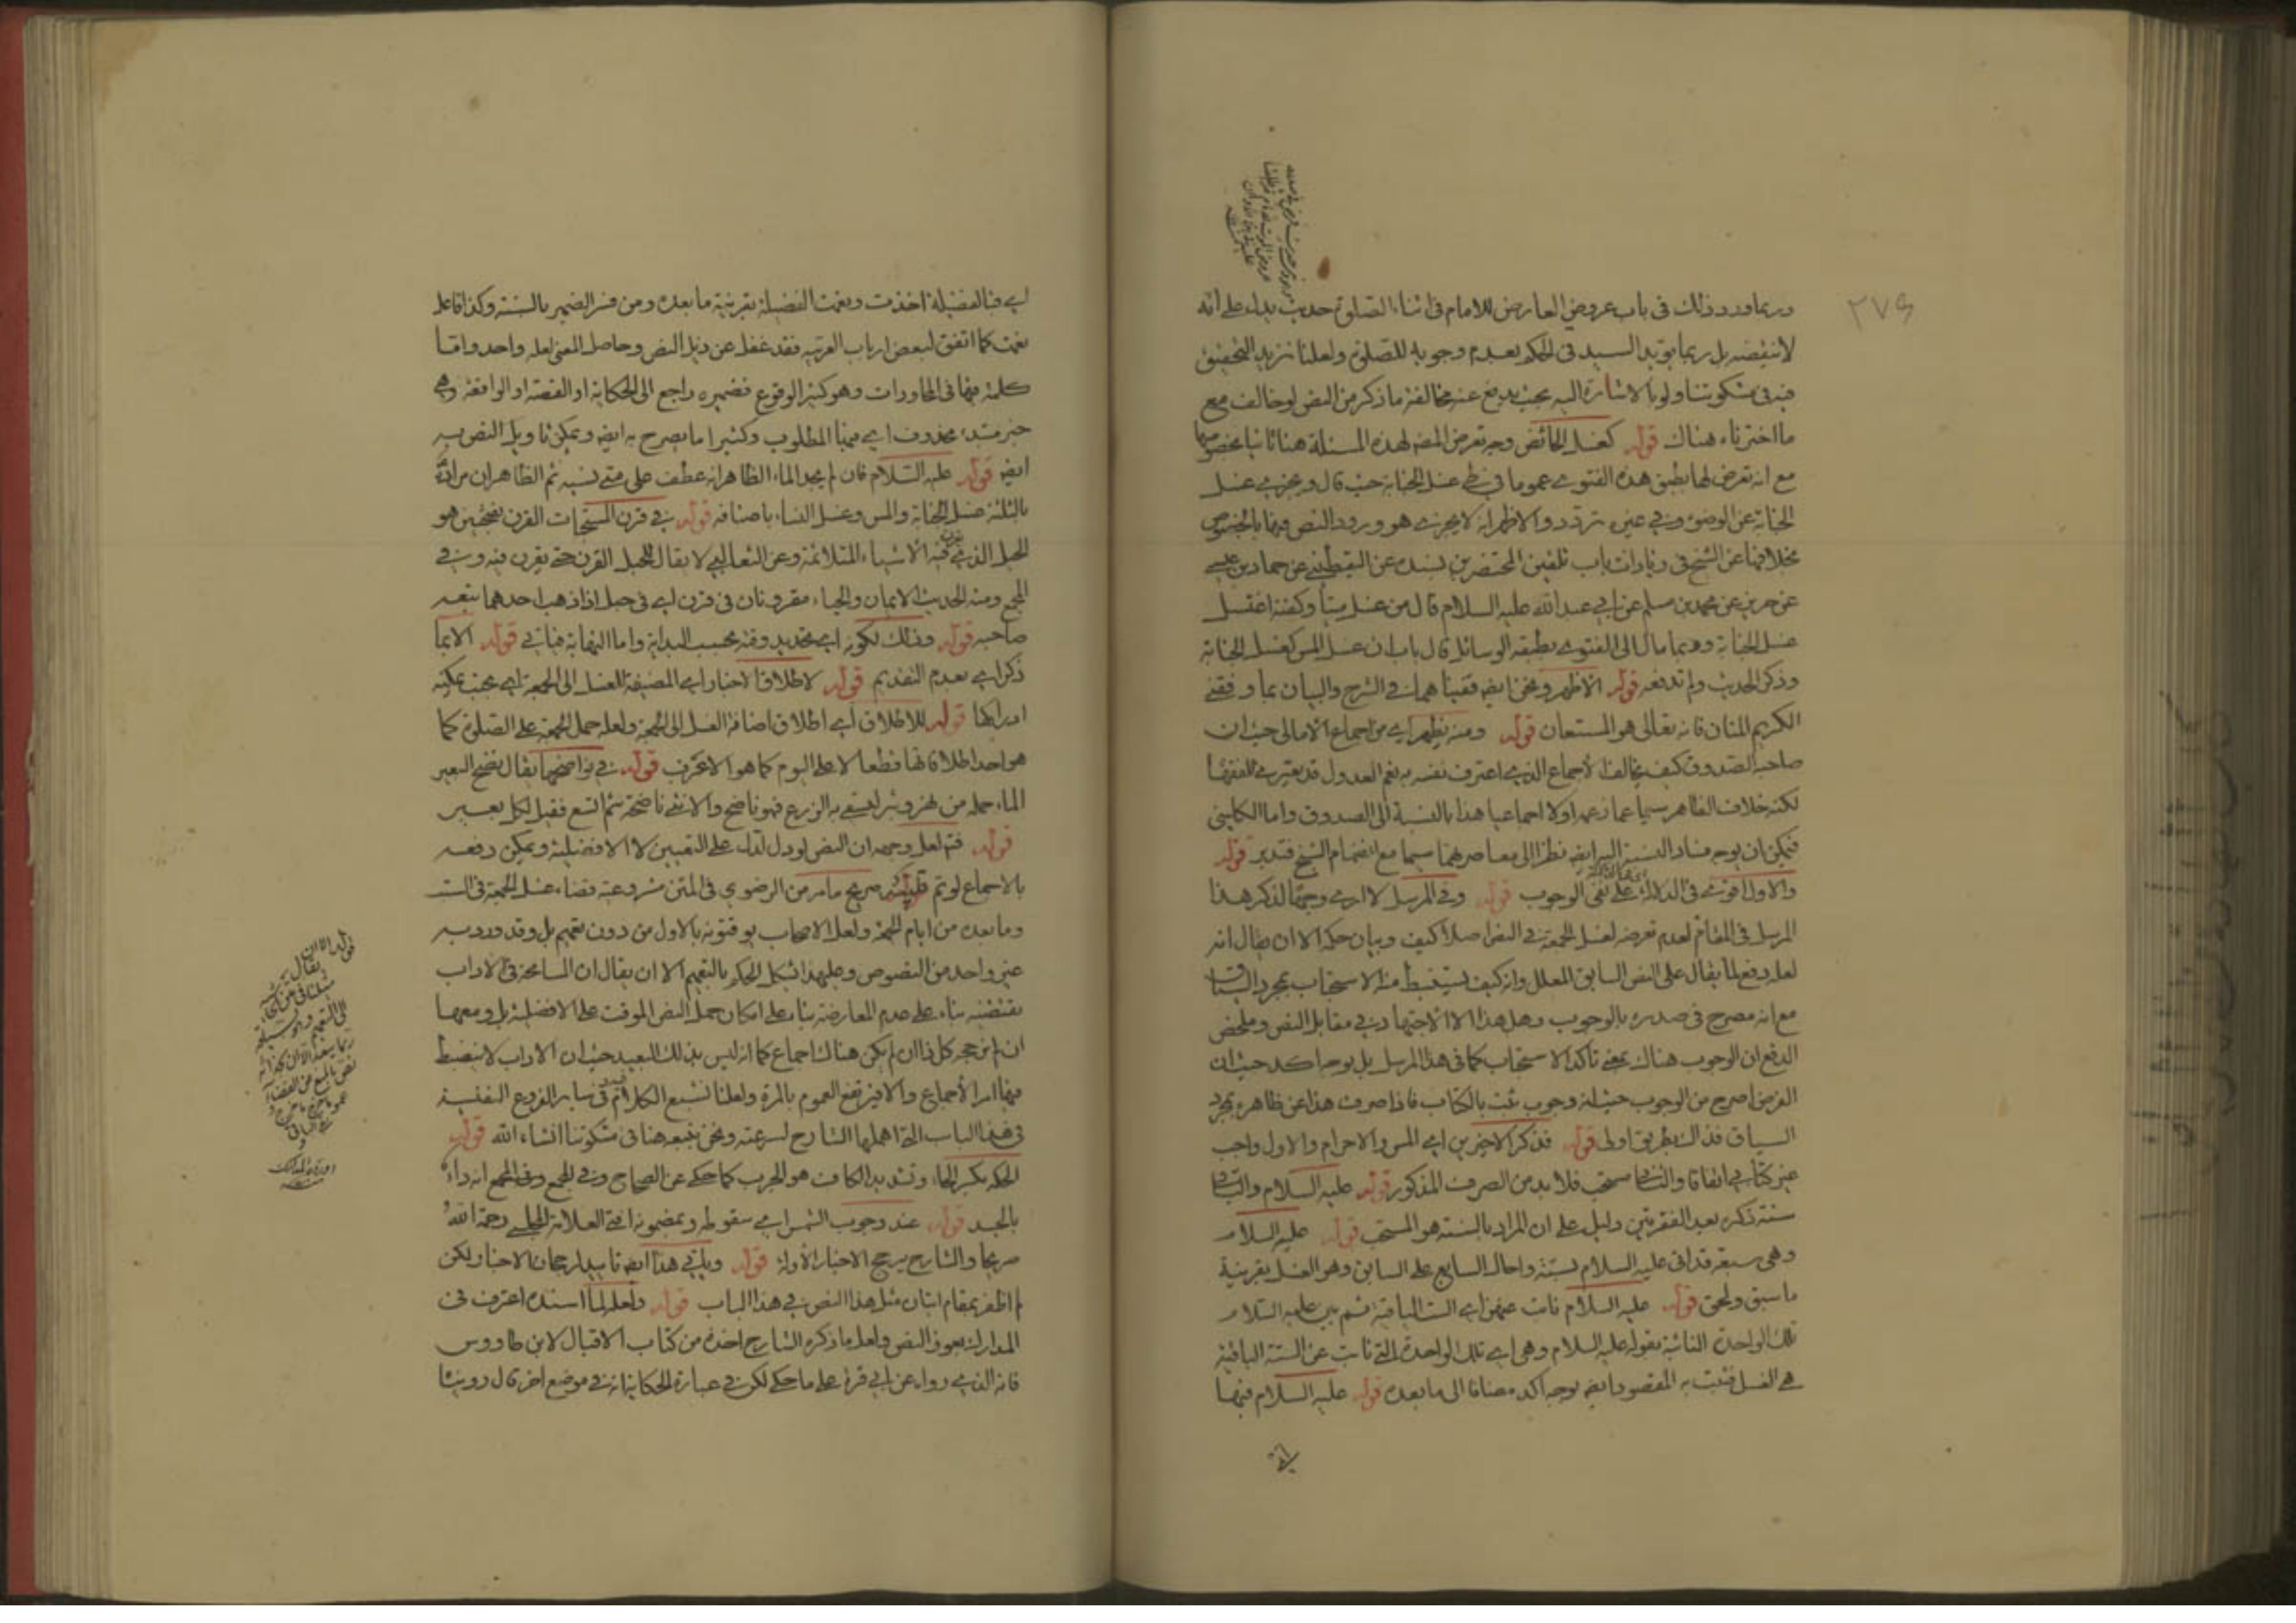 وربما ورد ذلك في باب عروض العارض للامام في اثناء الصلوة حديث يدل على انه
لا ينقضه بل ربما يؤيد السيد في الحكم بعدم وجوبه للصلوة ولعلنا نزيد التحقيق
فيه في مشكوتنا ولو بالاشارة اليه بحيث يدفع عنه مخالفة ما ذكر من النص لو خالف مع
ما اخترناه هناك قوله كغسل الحائض وجه تعرض المصه لهذه المسئلة هنا ثانيا بخصوصها
مع انه تعرض لها بطبق هذه الفتوى عموما في غسل الجنابة حيث قال ويجزى غسل
الجنابة عن الوضوء وفي غيره تردد والاظهر انه لا يجزى هو ورود النص فيها بالخصوص
بخلافها عن الشيخ في زيادات باب تلقين المحتضرين بسنده عن اليقطيني عن حماد بن عيسى
عن حريز عن محمد بن مسلم عن ابي عبد الله عليه السلام قال من غسل ميتا وكفنه اغتسل
غسل الجنابة وربما مال الى الفتوى بطبقه الوسائل قال باب ان غسل المس كغسل الجنابة
وذكر الحديث ولم تدفعه قوله الاظهر ونحن ايضه قفيناهما في الشرح والبيان بما وفقنى
الكريم المنان فانه تعالى هو المستعان قوله ومنه يظهر اي من اجماع الامالي حيث ان
صاحبه الصدوق كيف يخالف الاجماع الذي اعترف نفسه به نعم العدول قد يعتري الفقهاء
لكنه خلاف الظاهر سيما عما زعمه اولا اجماعيا هذا بالنسبة الى الصدوق واما الكليني
فيمكن ان يوجه فساد النسبة اليه ايضه نظرا الى معاصرهما سيما مع انضمام الشيخ فتدبر قوله
والاول اقوى في الدلالة على نفي الوجوب قوله وفي المرسل لا ارى وجها لذكر هذا
المرسل في المقام لعدم تعرضه لغسل الجمعة في النص اصلا كيف وبيان حكمه الا ان يقال انه
لعله دفع لما يقال على النص السابق المعلل وانه كيف يستنبط منه الاستحباب بمجرد السياق
مع انه مصرح في صدره بالوجوب وهل هذا الا الاجتهاد في مقابل النص وملخص
الدفع ان الوجوب هناك بمعنى تأكد الاستحباب كما في هذا المرسل بل بوجه اكد حيث ان
الفرض اصرح من الوجوب حيث انه وجوب ثبت بالكتاب فاذا صرف هذا عن ظاهره بمجرد
السياق فذاك بطريق اولى قوله فذكر الاخيرين اي المس والاحرام والاول واجب
غير كتابي اتفاقا والثاني مستحب فلا بد من الصرف المذكور قوله عليه السلام والثاني
سنة ذكره بعيد الفقرتين دليل على ان المراد بالسنة هو المستحب قوله عليه السلام
وهي سبعة قد اتى عليه السلام بستة واحال السابع على السابق وهو الغسل بقرينة
ما سبق ولحق قوله عليه السلام نابت عنهن اي الست الباقية ثم بين عليه السلام
تلك الواحدة النائبة بقوله عليه السلام وهي اي تلك الواحدة التي نابت عن الستة الباقية
هي الغسل فثبت به المقصود ايضه بوجه اكد مضافا الى ما بعده قوله عليه السلام فبها
اي فبالفضيلة اخذت ونعمت الفضيلة بقرينة ما بعده ومن فسر الضمير بالسنة وكذا فاعل
نعمت كما اتفق لبعض ارباب العربية فقد غفل عن ذيل النص وحاصل المعنى لعله واحد واما
كلمة فبها في المحاورات وهو كثير الوقوع فضميره راجع الى الحكاية او القصة او الواقعة وهي
خبر مبتدء محذوف اي فبها المطلوب وكثيرا ما يصرح به ايضه ويمكن تاويل النص به
ايضه قوله عليه السلام فان لم يجد الماء الظاهر انه عطف على متى نسيه ثم الظاهر ان مراده
بالثلثة غسل الجنابة والمس وغسل النساء باضافه قوله في قرن المستحبات القرن بفتحتين هو
الحبل الذي يقرن فيه الاشياء المتلائمة وعن الثعالبي لا يقال للحبل القرن حتى يقرن فيه وفي
المجمع ومنه الحديث الايمان والحياء مقرونان في قرن اي في حبل اذا ذهب احدهما تبعه
صاحبه قوله وذلك لكونه اي تحديد وقته بحسب البداية واما النهاية فياتي قوله الايما
ذكر اي بعدم التقديم قوله لاطلاق الاخبار اي المضيفة للغسل الى الجمعة اي بحيث يمكنه
ادراكها قوله للاطلاق اي اطلاق اضافة الغسل الى الجمعة ولعله حمل الجمعة على الصلوة كما
هو احد اطلاقاتها قطعا لا على اليوم كما هو الاعرف قوله في نواضحهم يقال نضح البعير
الماء حمله من نهر وبئر ليسقى به الزرع فهو ناضح والانثى ناضحة ثم اتسع فقيل لكل بعير
قوله فتم لعل وجهه ان النص لو دل لدل على التعيين لا الافضلية ويمكن دفعه
بالاجماع لو تم قوله صريح مامر من الرضوي في المتن مشروعية قضاء غسل الجمعة في السبت
وما بعده من ايام الجمعة ولعل الاصحاب يوقتونه بالاول من دون تعميم بل وقد ورد به
غير واحد من النصوص وعليهذا اشكل الحكم بالتعميم الا ان يقال ان المسامحة في الاداب
تقتضيه بناء على عدم المعارضة بناء على امكان حمل النص الموقت على الافضلية بل ومعها
ان لم نرجح كل ذا ان لم يكن هناك اجماع كما انه ليس بذلك البعيد حيث ان الاداب لا ينضبط
فيها امر الاجماع والا فيرتفع العموم بالمرة ولعلنا نشبع الكلام فيه وفي ساير الفروع النفيسة
في هذا الباب التي اهملها الشارح لسرعته ونحن نتبعه هنا في مشكوتنا انشاء الله قوله
الحكة بكسر الحاء وتشديد الكاف هو الجرب كما حكى عن الصحاح وفي المجمع انه داء
بالجسد قوله عند وجوب الشمس اي سقوطه وبمضمونه افتى العلامة المجلسي رحمة الله
صريحا والشارح يرجح الاخبار الاولة قوله وياتي هذا ايضه تاييد لرجحان الاخبار لكن
لم اظفر بمقام اتيان مثل هذا النص في هذا الباب قوله ولعله لما اسنده اعترف في
المدارك بعوز النص ولعل ما ذكره الشارح اخذه من كتاب الاقبال لابن طاووس
فانه الذي رواه عن ابي قرة على ما حكى لكن في عبارة الحكاية انه في موضع اخر قال روينا